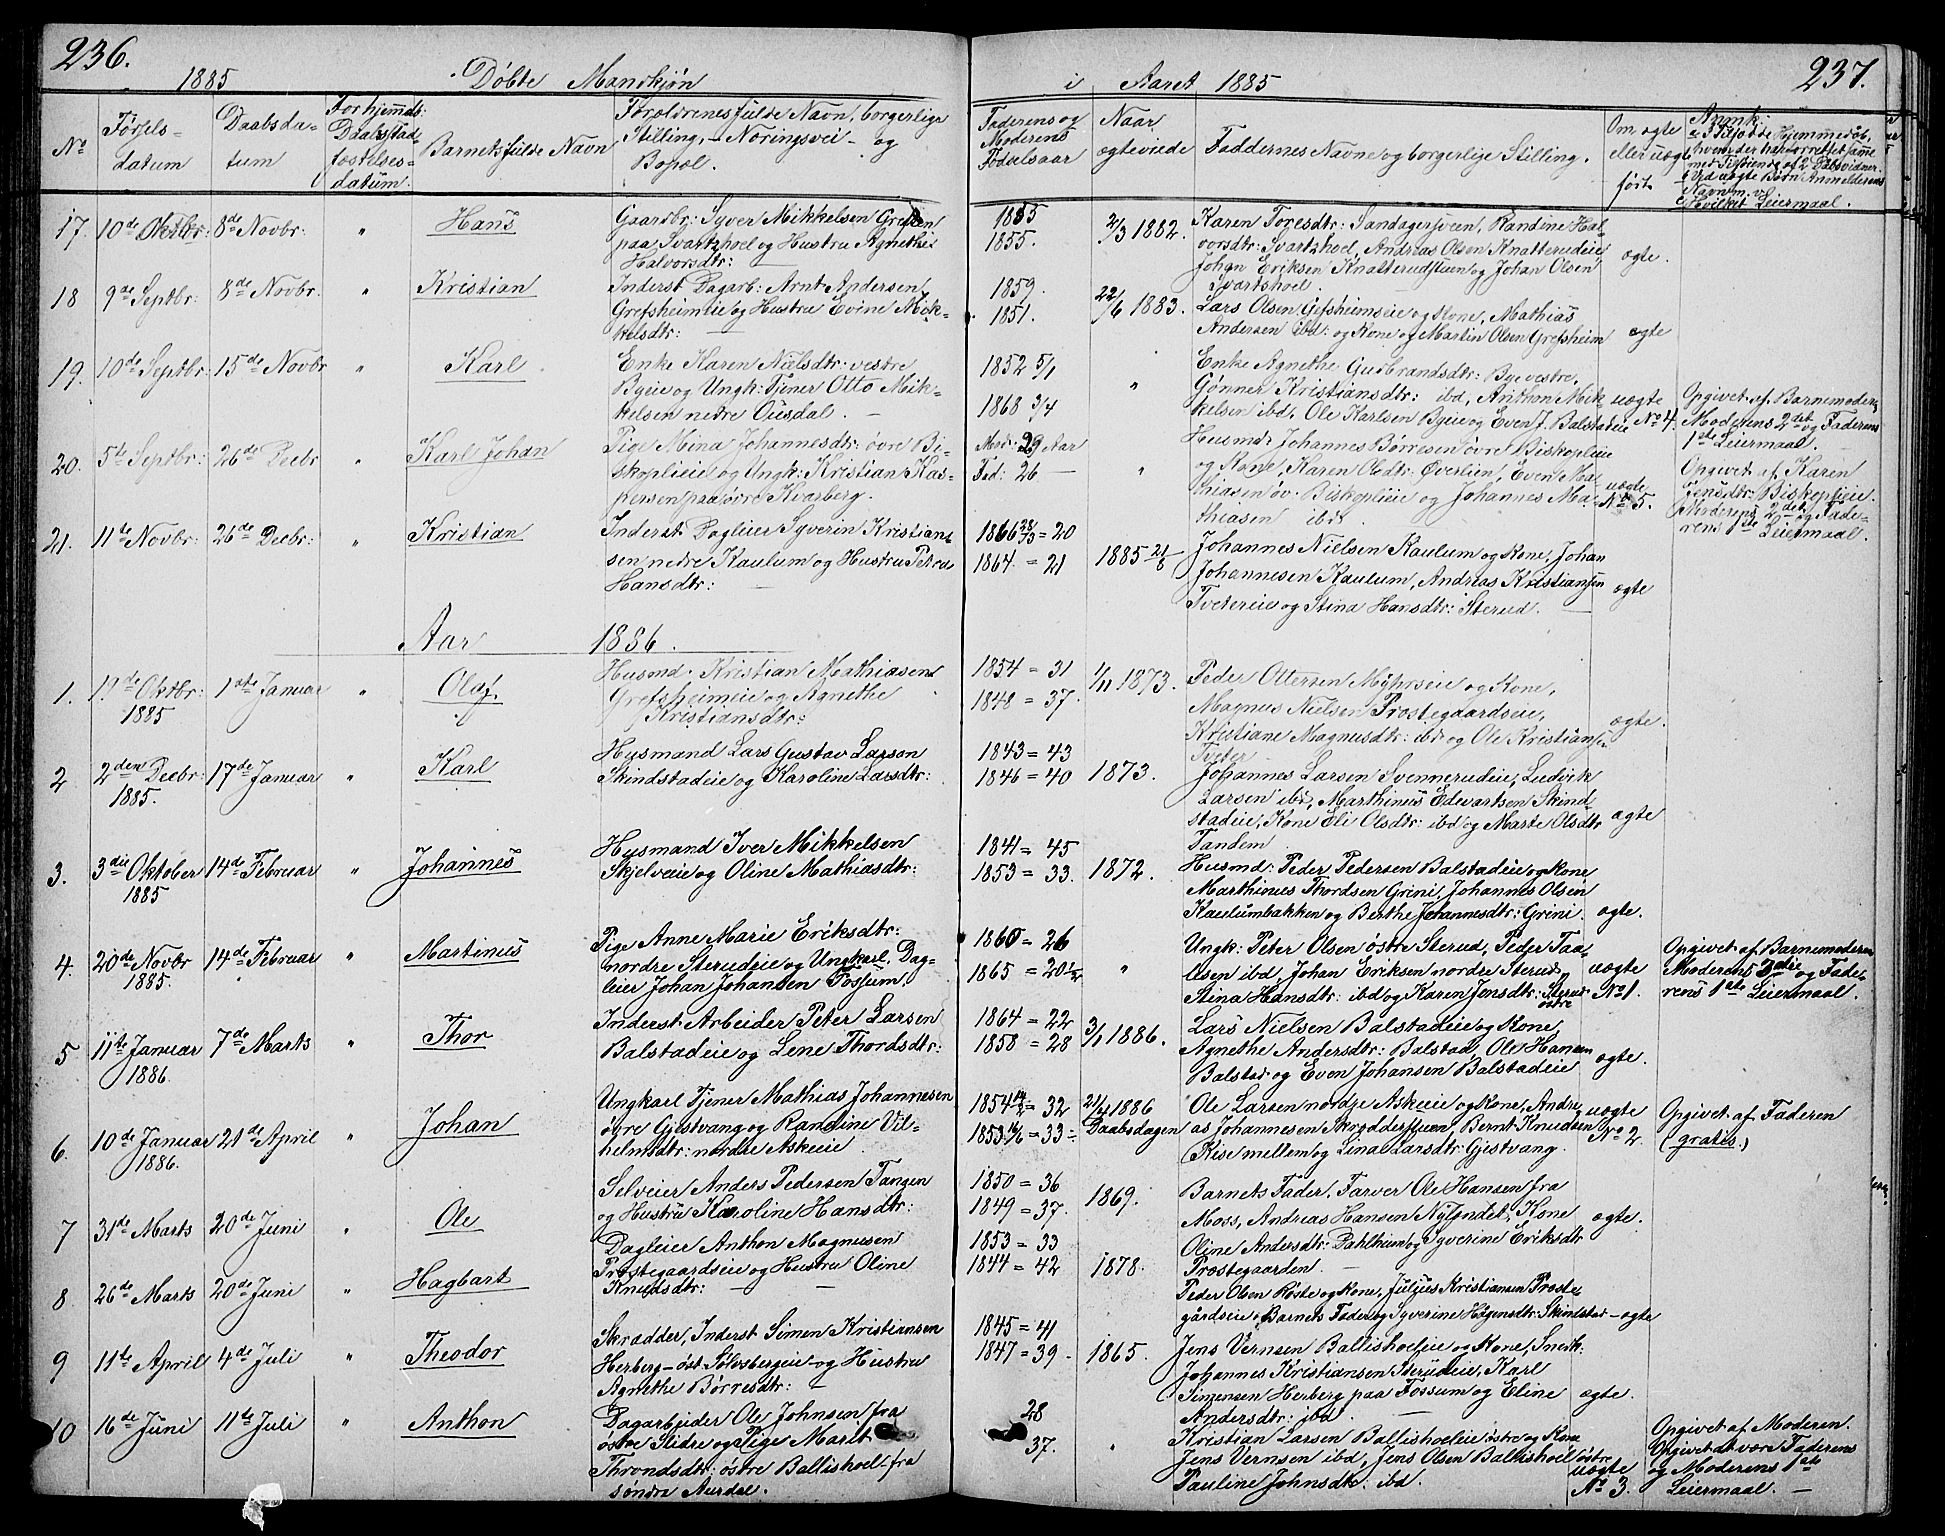 236.
1885 Døbte Mandkjøn
No
Fødsels-
datum
Daabsda-
tum
Barnets fulde Navn
Forældrenes fulde Navn, borgerlige
Stilling, - Næringsvei - og
Bopæl.
17. 10de Oktbr: 8de Novbr: " Hans
Gaardbr: Syver Mikkelsen
paa Svartshoel og Hustru Agnethe
Halvorsdtr:
18 9de Septbr: 8de Novbr. " Kristian
Inderst Dagarb: Arnt Andersen
Grefsheimeie og Hustru Eoine Mik-
kelsdtr:
19. 10de Septbr: 15de Novbr " Karl
Enke Karen Nielsdtr: vestre
Byeie og Ungk: Tjener Otto Mik-
kelsen nedre Ousdal. —
20. 5te Septbr: 26de Decbr " Karl Johan
Pige Mina Johannesdtr: øvre Bi-
skoplieie og Ungk: Kristian Kas-
persen paa øvre Kvarberg.
21. 11te Novbr: 26de Decbr: " Kristian
Inderst Dagleier Syverin Kristian-
sen nedre Kaulum og Hustru Petrea
Hansdtr: —
Aar 1886.
1. 19de Oktbr: 1ste Januar " Olaf.
1885
Husmd. Kristian Mathiasen
Grefsheimeie og Agnethe
Kristiansdtr:
2 2den Decbr: 17de Januar " Karl
1885.
Husmand Lars Gustav Larson
Skindstadeie og Karoline Larsdtr:
3. 3die Oktober 14de Februar " Johannes
1885
Husmand Iver Mikkelsen
Skjelveie og Oline Mathiasdtr:
4. 20de Novbr 14de Februar " Martinus
1885.
Pige Anne Marie Eriksdtr:
nordre Sterudeie og Ungkarl, Dag-
leier Johan Johansen Fossum.
5 11te Januar 7de Marts " Thor
1886.
Inderst Arbeider Peter Larsen
Balstadeie og Lene Thordsdtr:
6. 10de Januar 21de April " Johan
1886.
Ungkarl Tjener Mathias Johannesen
øvre Gjestvang og Randine Vil-
helmsdtr: nordre Askeie.
7 31de Marts 20de Juni " Ole
Selveier Anders Pedersen Tangen
og Hustru Karoline Hansdtr:
8 26de Marts 20de Juni " Hagbart
Dagleier Anthon Magnusen
Præstegaardseie og Hustru Oline
Knudsdtr: —
9 11te April 4de Juli " Theodor
Skrædder, Inderst Simen Kristiansen
Herberg - øst. Sølvsbergeie - og Hustru
Agnethe Børresdtr: —
10 16de Juni 11te Juli " Anthon
Dagarbeider Ole Johnsen fra
østre Slidre og Pige Marit
Throndsdtr: østre Ballishoel fra
søndre Aurdal.
237.
i Aaret 1885
Faderens og
Moderens
Fødselsaar
Naar
ægteviede
Faddernes Navne og borgerlige Stilling.
Om ægte
eller uægte
født
1855
1855. 2/3 1882.
Karen Toresdtr: Sandagersveen, Randine Hal-
vorsdtr: Svartshoel, Andreas Olsen Knatterudeie,
Johan Eriksen Knatterudstuen og Johan Olsen
Svartshoel. ægte.
1859.
1851. 22/6 1883.
Lars Olsen Grefsheimseie og Kone, Mathias
Andersen ibd: og Kone og Martin Olsen Grefsheim ægte
1852 5/1
1868 3/4 "
Enke Agnethe Gudbrandsdtr: Byevestre,
Gønner Kristiansdtr: ibd, Anthon Mik-
kelsen ibd, Ole Karlsen Byeie og Even J. Balstadeie
uægte
No 4.
Opgivet af Barnemoderen
Moderens 2det og Faderens
1ste Leiermaal.
Mod: 29 Aar
Fad: 26 — "
Husmd: Johannes Børresen øvre Biskoplieie
og Kone, Karen Olsdtr: Øverlien, Even Ma-
thiasen øv. Biskoplieie og Johannes Ma-
thiasen ibd.
uægte
No 5.
Opgivet af Karen
Jensdtr: Biskoplieie.
Moderens 2det og Fade-
rens 1ste Leiermaal.
1866 = 20
1864 = 21 1885
Johannes Nielsen Kaulum og Kone, Johan
Johannesen Kaulum, Andreas Kristiansen
Tvetereie og Stina Hansdtr: Sterud. — ægte
1854 = 31
1848 = 37. 1/11 1873.
Peder Ottersen Myhrseie og Kone,
Magnus Nielsen Præstegaardseie,
Kristiane Magnusdtr: ibd og Ole Kristiansen
Tveter ægte.
1843 = 43
1846 = 40 1873.
Johannes Larsen Svennerudeie, Ludvik
Larsen ibd, Marthinus Edvartsen Skind-
stadeie, Kone Eli Olsdtr: ibd og Marte Olsdtr
Tandem ægte
1841 = 45
1853 = 33. 1872.
Husmd: Peder Pedersen Balstadeie og Kone
Marthinus Thordsen Grini, Johannes Olsen
Kaulumbakken og Berthe Johannesdtr: Grini. ægte.
1860 = 26
1865 = 20 1/2 "
Ungk: Peter Olsen østre Sterud, Peder Paa-
lsen ibd, Johan Eriksen nordre Sterud
Stina Hansdtr: ibd og Karen Jensdtr: Sterud
østre
uægte
No 1.
Opgivet af Barnemoderen
Moderens 3die og Fade-
rens 1ste Leiermaal.
1864 = 22
1858 = 28 3/1 1886.
Lars Nielsen Balstadeie og Kone,
Agnethe Andersdtr: Balstad, Ole Hansen
Balstad og Even Johansen Balstadeie ægte.
1854 = 32 21/4 1886
1853 = 33 = Daabsdagen
Ole Larsen nordre Askeie og Kone, Andre-
as Johannesen Skrædderstuen, Bernt Knudsen
Kise mellem og Lina Larsdtr: Gjestvang.
uægte
No 2.
Opgivet af Faderen
(gratis.)
1850 = 36
1849 = 37. 1869.
Barnets Fader, Farver Ole Hansen fra
Moss, Andreas Hansen Nylændet, Kone
Oline Andersdtr: Dahlheim og Syverine Eriksdtr
Præstegaarden. — ægte.
1853 = 33
1844 = 42 1878.
Peder Olsen Røste og Kone, Julius Kristiansen Præste-
gårdseie, Barnets Fader og Syverine Hågensdtr: Skindstad — ægte
1845 = 41
1847 = 39. 1865.
Jens Vernsen Ballishoeleie og Kone, Snedk:
Johannes Kristiansen Sterudeie, Karl
Simensen Herberg paa Fossum og Eline
Andersdtr: ibd. — ægte.
28
37. "
Kristian Larsen Ballishoeleie østre og Kone
Jens Vernsen ibd, Jens Olsen Ballishoel østre
Pauline Johnsdtr. ibd.
uægte
No 3.
Opgivet af Moderen.
Opgivet at være Faderens
og Moderens 1ste
Leiermaal. —